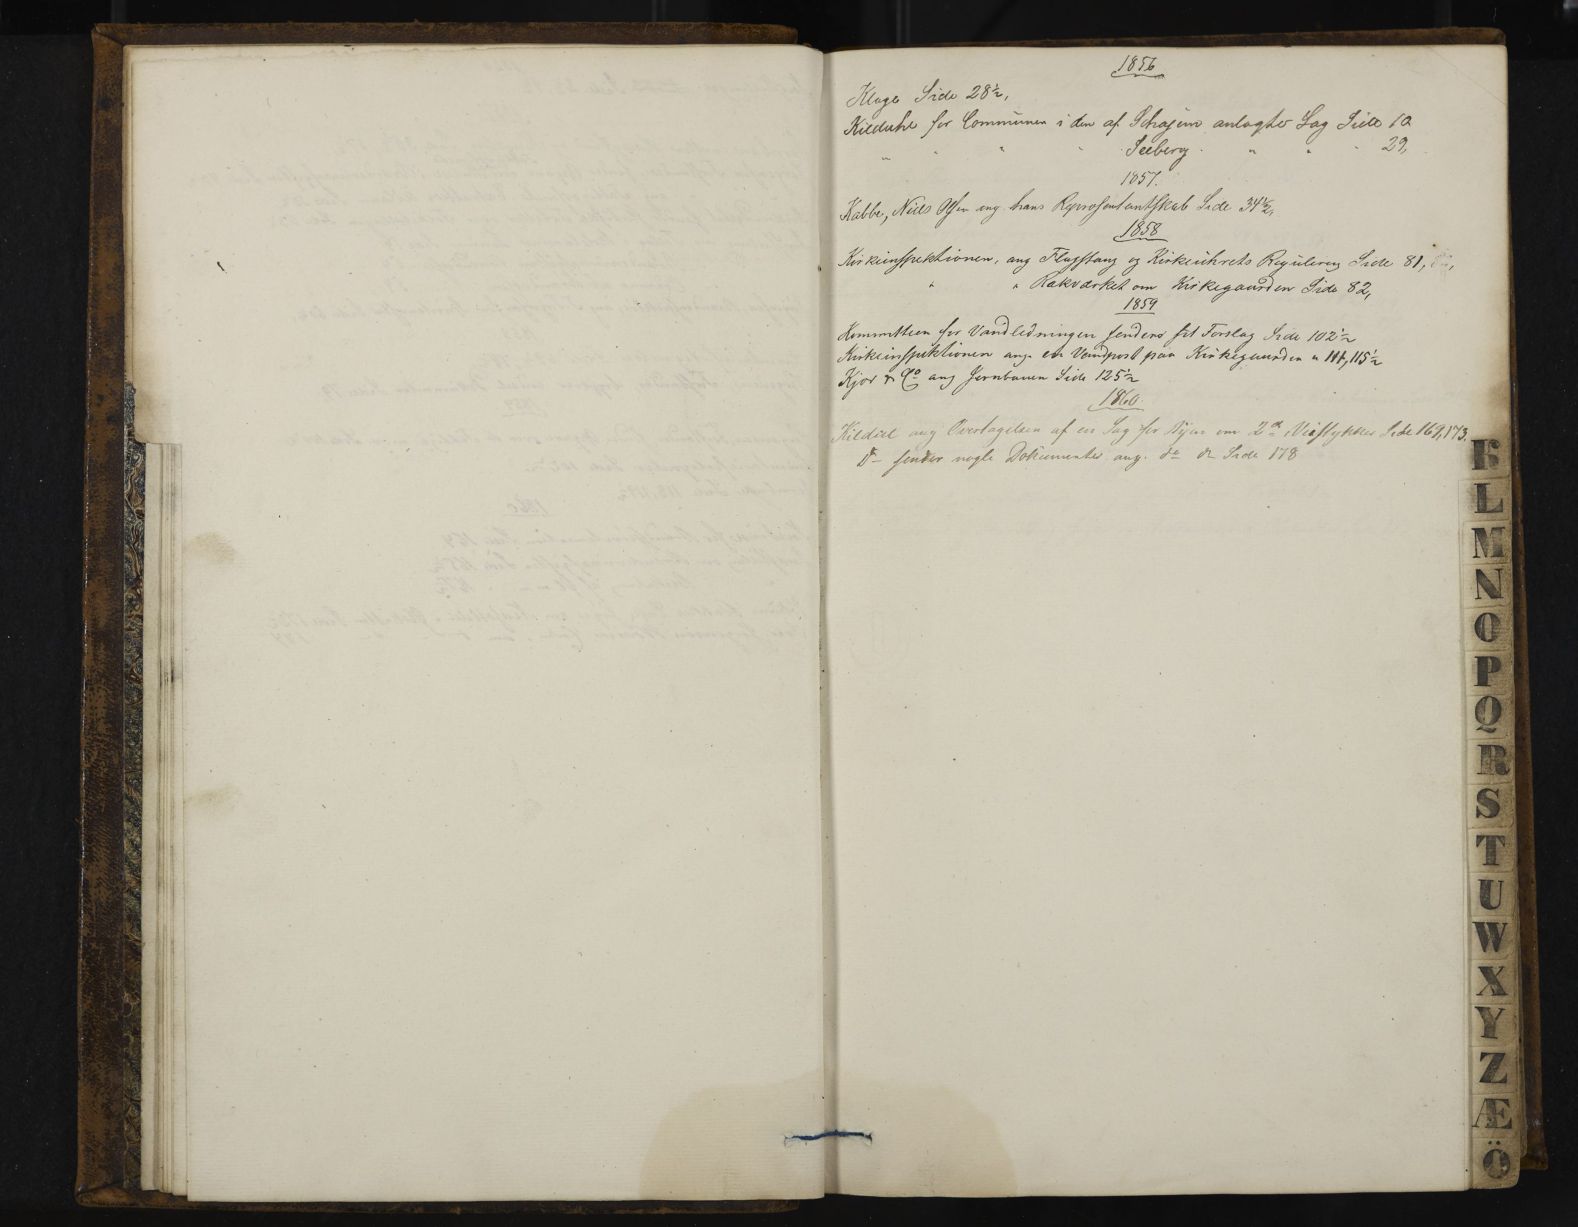 1856
Klage Side 28½,
Kildahl for Communen i den af Schagen anlagte Sag Side 10
" " " " Seeberg " " " 29,
1857.
Kabbe, Niels Olsen ang. hans Repræsentantskab Side 34½,
1858
Kirkeinspektionen, ang Flagstang og Kirkeuhrets Regulering Side 81,
" " Rakværket om Kirkegaarden Side 82,
1859
Kommitteen for Vandledningen sender sit Forslag Side 102½
Kirkeinspektionen ang. en Vandpost paa Kirkegaarden " 111, 115½
Kjør & Co ang Jernbanen Side 125½
1860.
Kildal ang Overtagelsen af en Sag for Byen om 2de Side 169, 173.
Do sender nogle Dokumenter ang. do do Side 178
K
L
M
N
O
P
Q
R
S
T
U
W
X
Y
Z
Æ
Ö